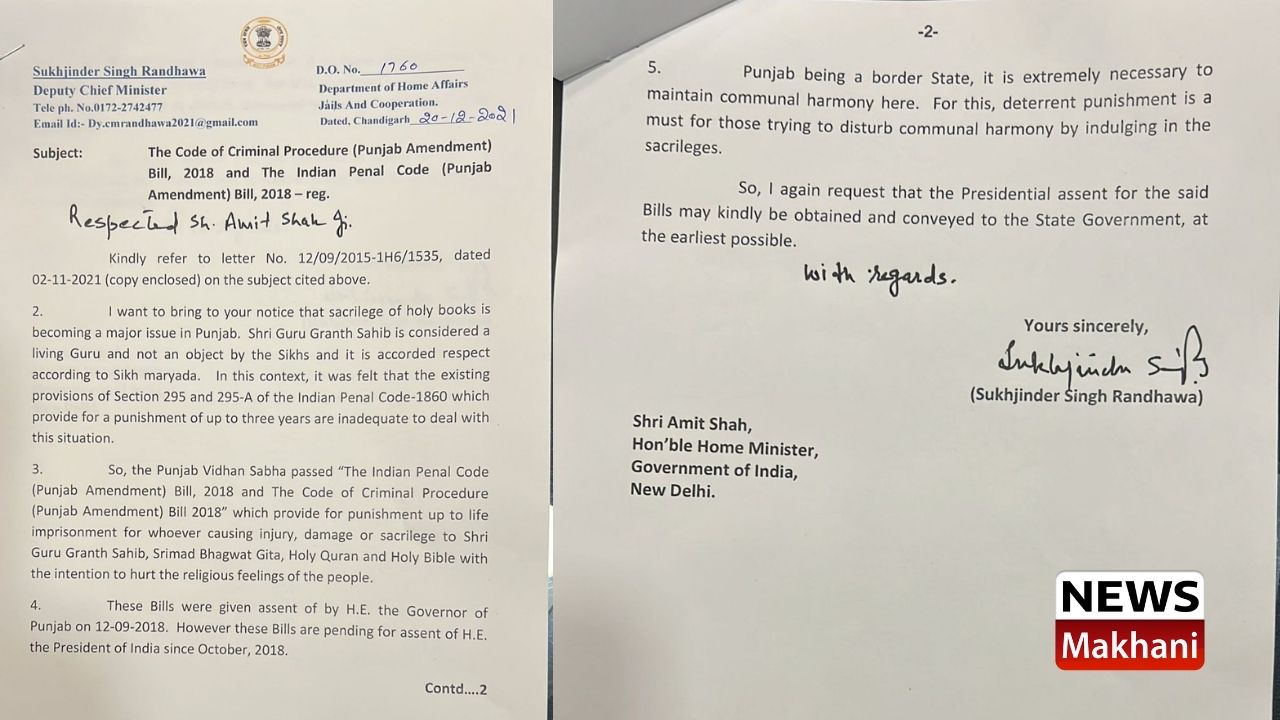 Sukhjinder Singh Randhawa
Deputy Chief Minister
Tele ph. No.0172-2742477
Email Id:- Dy.cmrandhawa2021@gmail.com
D.O. No. 1760
Department of Home Affairs
Jails And Cooperation.
Dated, Chandigarh 20-12-2021
Subject: The Code of Criminal Procedure (Punjab Amendment)
Bill, 2018 and The Indian Penal Code (Punjab
Amendment) Bill, 2018 – reg.
Respected Sh. Amit Shah Ji.
Kindly refer to letter No. 12/09/2015-1H6/1535, dated
02-11-2021 (copy enclosed) on the subject cited above.
2. I want to bring to your notice that sacrilege of holy books is
becoming a major issue in Punjab. Shri Guru Granth Sahib is considered a
living Guru and not an object by the Sikhs and it is accorded respect
according to Sikh maryada. In this context, it was felt that the existing
provisions of Section 295 and 295-A of the Indian Penal Code-1860 which
provide for a punishment of up to three years are inadequate to deal with
this situation.
3. So, the Punjab Vidhan Sabha passed “The Indian Penal Code
(Punjab Amendment) Bill, 2018 and The Code of Criminal Procedure
(Punjab Amendment) Bill 2018” which provide for punishment up to life
imprisonment for whoever causing injury, damage or sacrilege to Shri
Guru Granth Sahib, Srimad Bhagwat Gita, Holy Quran and Holy Bible with
the intention to hurt the religious feelings of the people.
4. These Bills were given assent of by H.E. the Governor of
Punjab on 12-09-2018. However these Bills are pending for assent of H.E.
the President of India since October, 2018.
Contd....2
-2-
5. Punjab being a border State, it is extremely necessary to
maintain communal harmony here. For this, deterrent punishment is a
must for those trying to disturb communal harmony by indulging in the
sacrileges.
So, I again request that the Presidential assent for the said
Bills may kindly be obtained and conveyed to the State Government, at
the earliest possible.
with regards.
Yours sincerely,
(Sukhjinder Singh Randhawa)
Shri Amit Shah,
Hon’ble Home Minister,
Government of India,
New Delhi.
NEWS
Makhani